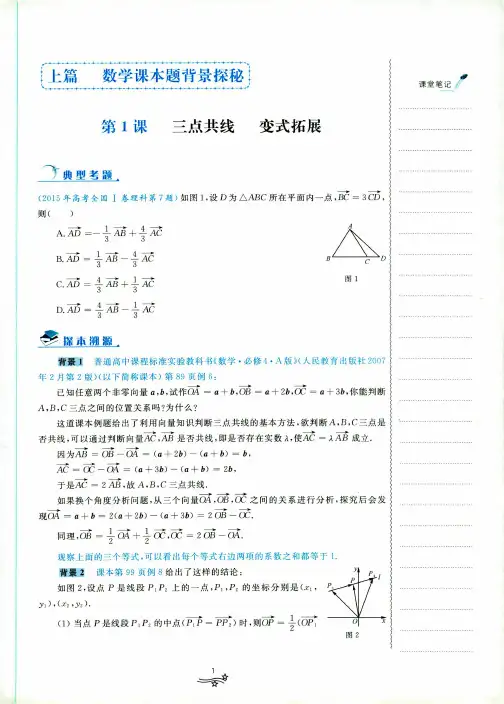 上篇 数学课本题背景探秘
课堂笔记
第1课 三点共线 变式拓展
典型考题
(2015年高考全国Ⅰ卷理科第7题)如图1,设D为△ABC所在平面内一点,$\overrightarrow{BC}=3\overrightarrow{CD}$,
则( )
A.$\overrightarrow{AD}=-\frac{1}{3}\overrightarrow{AB}+\frac{4}{3}\overrightarrow{AC}$
B.$\overrightarrow{AD}=\frac{1}{3}\overrightarrow{AB}-\frac{4}{3}\overrightarrow{AC}$
C.$\overrightarrow{AD}=\frac{4}{3}\overrightarrow{AB}+\frac{1}{3}\overrightarrow{AC}$
D.$\overrightarrow{AD}=\frac{4}{3}\overrightarrow{AB}-\frac{1}{3}\overrightarrow{AC}$
A
B C D
图1
探本溯源
背景1 普通高中课程标准实验教科书《数学·必修4·A版》(人民教育出版社2007
年2月第2版)(以下简称课本)第89页例6:
已知任意两个非零向量a,b,试作$\overrightarrow{OA}=a+b$,$\overrightarrow{OB}=a+2b$,$\overrightarrow{OC}=a+3b$,你能判断
A,B,C三点之间的位置关系吗?为什么?
这道课本例题给出了利用向量知识判断三点共线的基本方法,欲判断A,B,C三点是
否共线,可以通过判断向量$\overrightarrow{AC}$,$\overrightarrow{AB}$是否共线,即是否存在实数λ,使$\overrightarrow{AC}=λ\overrightarrow{AB}$成立.
因为$\overrightarrow{AB}=\overrightarrow{OB}-\overrightarrow{OA}=(a+2b)-(a+b)=b$,
$\overrightarrow{AC}=\overrightarrow{OC}-\overrightarrow{OA}=(a+3b)-(a+b)=2b$,
于是$\overrightarrow{AC}=2\overrightarrow{AB}$,故A,B,C三点共线.
如果换个角度分析问题,从三个向量$\overrightarrow{OA}$,$\overrightarrow{OB}$,$\overrightarrow{OC}$之间的关系进行分析,探究后会发
现$\overrightarrow{OA}=a+b=2(a+2b)-(a+3b)=2\overrightarrow{OB}-\overrightarrow{OC}$.
同理,$\overrightarrow{OB}=\frac{1}{2}\overrightarrow{OA}+\frac{1}{2}\overrightarrow{OC}$,$\overrightarrow{OC}=2\overrightarrow{OB}-\overrightarrow{OA}$.
观察上面的三个等式,可以看出每个等式右边两项的系数之和都等于1.
背景2 课本第99页例8给出了这样的结论:
如图2,设点P是线段P₁P₂上的一点,P₁,P₂的坐标分别是(x₁,
y₁),(x₂,y₂).
(1)当点P是线段P₁P₂的中点($\overrightarrow{P_1P}=\overrightarrow{PP_2}$)时,则$\overrightarrow{OP}=\frac{1}{2}(\overrightarrow{OP_1}$
y
P₁ P P₂ l
O x
图2
1